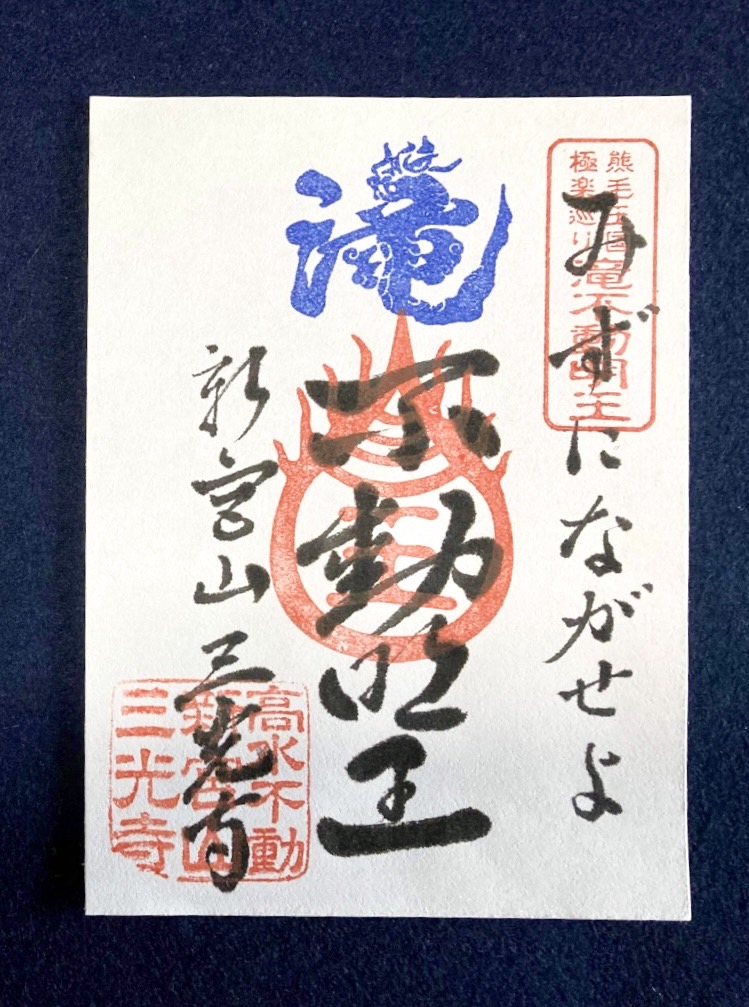 熊毛五国
極楽巡り
滝不動明王
みずにながせよ
滝
不動明王
新宮山 三光寺
高水不動
新宮山
三光寺